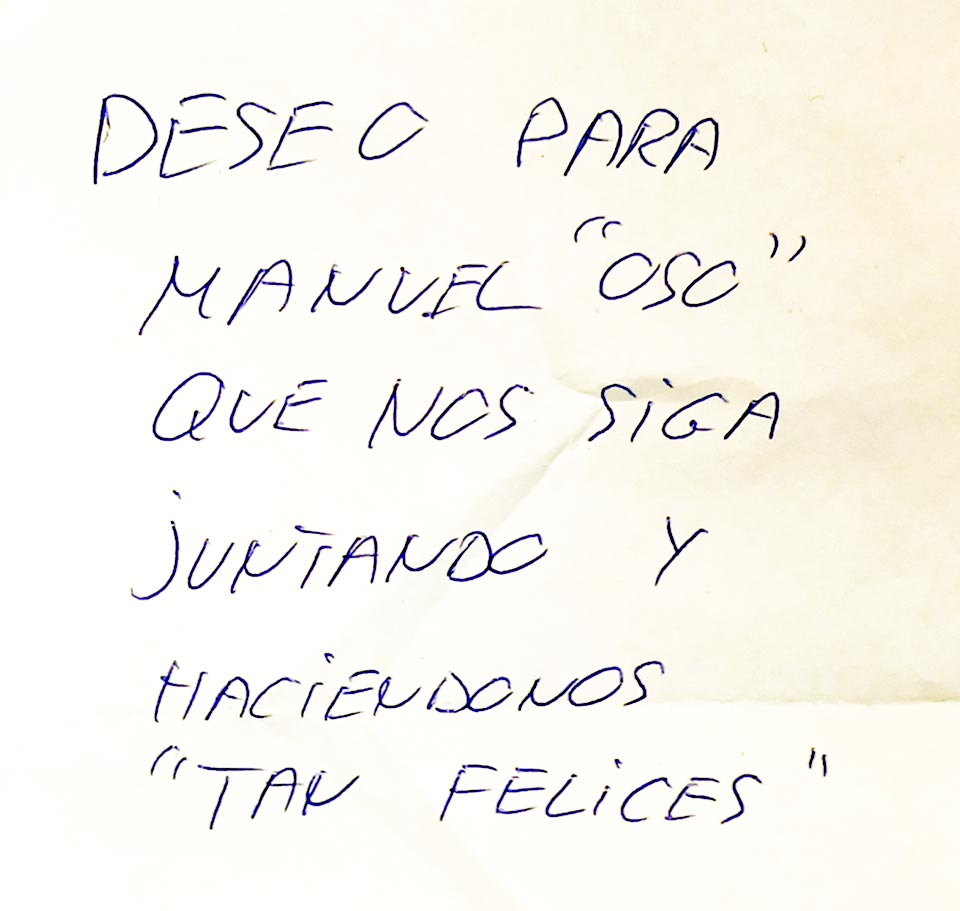 DESEO PARA
MANUEL "OSO"
QUE NOS SiGA
jUNTANDO Y
HACiENDONOS
"TAN FELiCES"